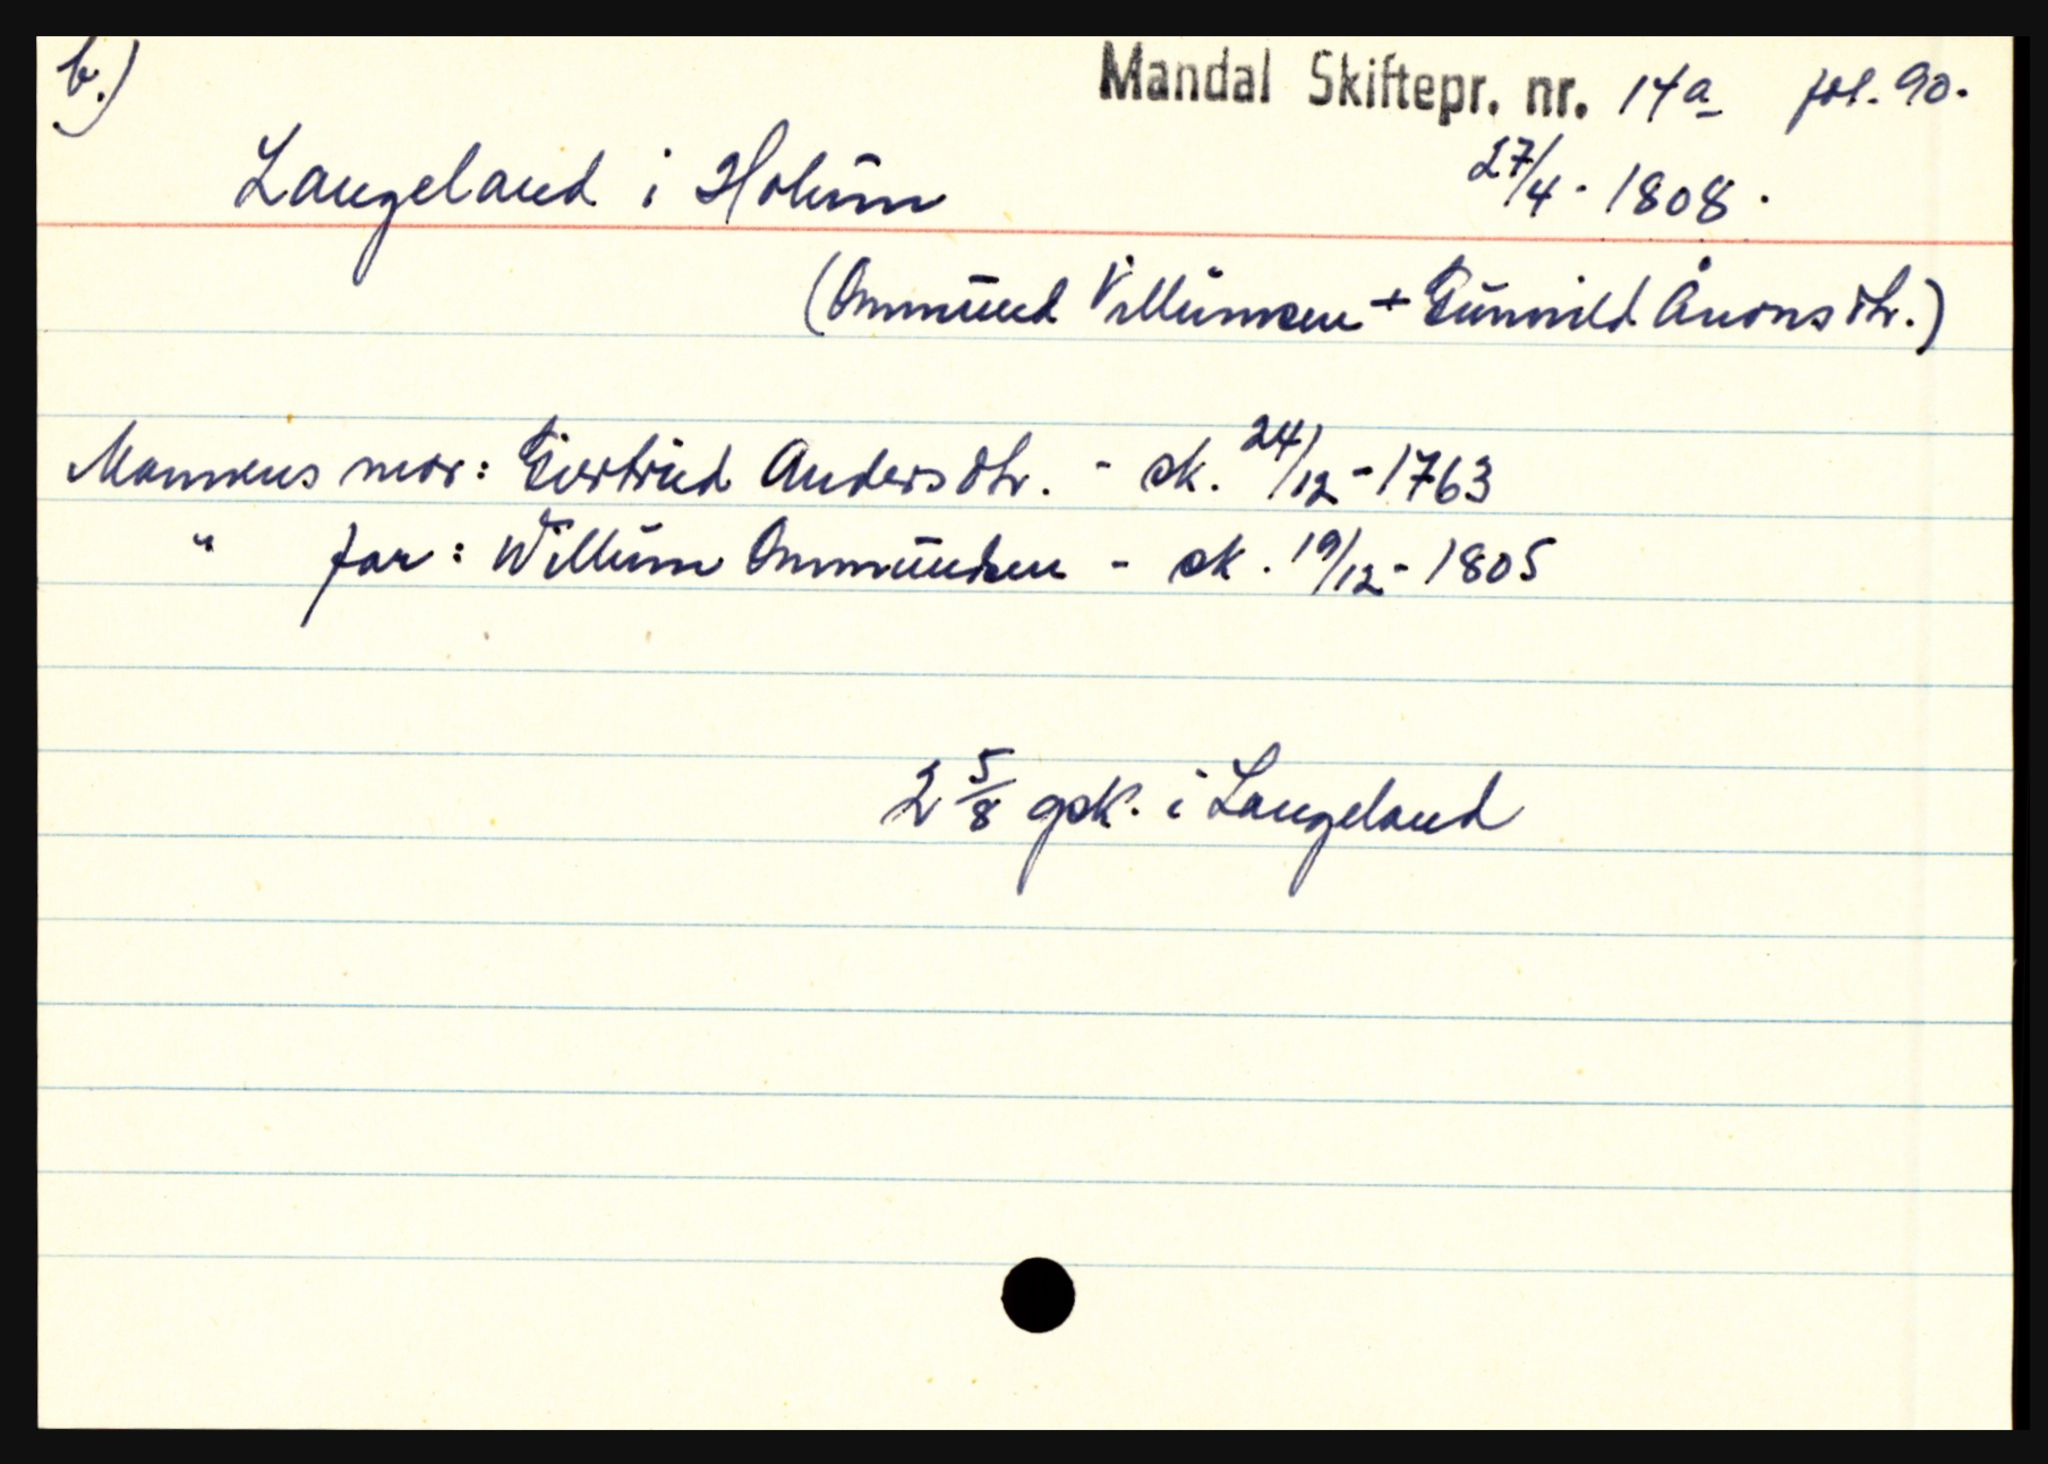 b.)
Mandal Skiftepr. nr. 14a fol. 90.
Langeland i Holum 27/4 - 1808.
(Ommund Villumsen + Gunnild Ånonsdtr.)
Mannens mor: Giertrud Andersdtr. - sk. 24/12 - 1763
" far: Willum Ommundsen - sk. 19/12 - 1805
2 5/8 gsk. i Langeland